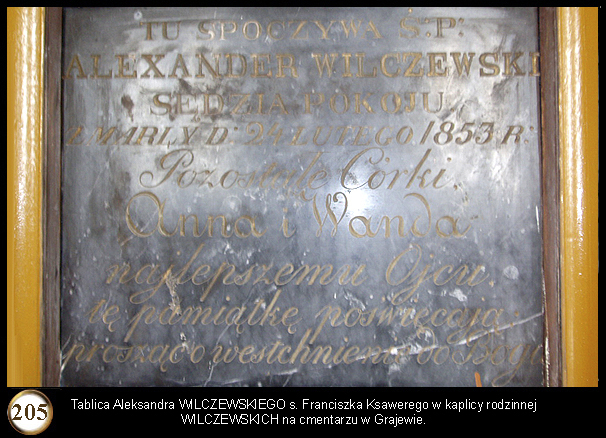 TU SPOCZYWA Ś:P:
ALEXANDER WILCZEWSKI
SĘDZIA POKOJU
ZMARŁY D: 24 LUTEGO 1853 R:
Pozostałe Córki,
Anna i Wanda
najlepszemu Ojcu,
tę pamiątkę poswięcają;
prosząc o westchnienie do Boga
205
Tablica Aleksandra WILCZEWSKIEGO s. Franciszka Ksawerego w kaplicy rodzinnej
WILCZEWSKICH na cmentarzu w Grajewie.